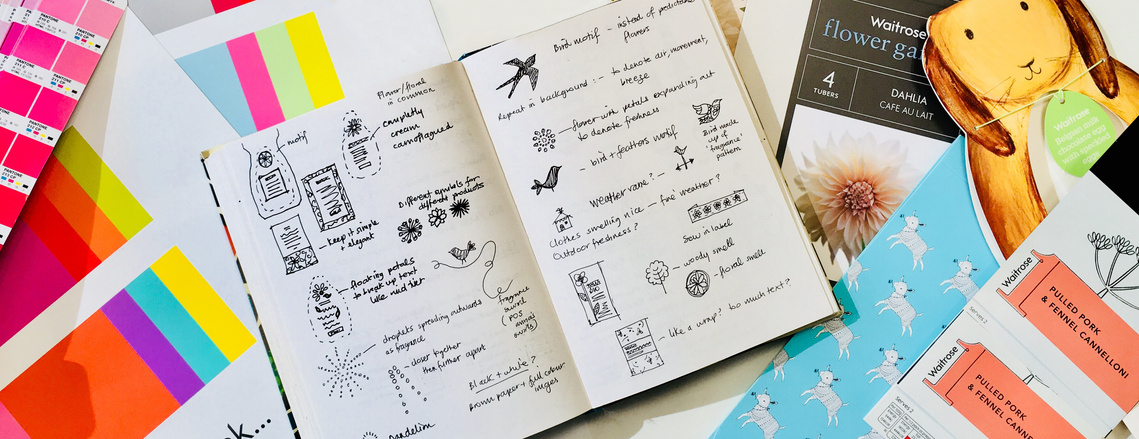 PANTONE
PANTONE
PANTONE
Flower/floral
in common
motif
completly
cream
camoflagued
Different symbols for
different products
Keep it simple
+ elegant
floating petals
to break up text
droplets spreading outwards
as fragrance
fragrance
swirl
(POS
closer together
then further apart
Black + white?
Brown paper + full colour
images
dandelion
Bird motif - instead of predictable
flowers
Repeat in background - to denote air, movement,
breeze
flower with petals expanding out
to denote freshness
bird + feathers motif
Bird made
up of
'fragrance'
pattern
Weather vane? - fine weather?
Clothes smelling nice
Outdoor freshness?
Sew in label
woody smell
floral smell
like a wrap? too much text?
k...
Waitrose
flower ga
4
TUBERS
DAHLIA
CAFE AU LAIT
Waitrose
Belgian milk
chocolate egg
with speckled
eggs
Waitrose
PULLED PORK
& FENNEL CANNELLONI
Serves 2
Waitrose
PULLED PORK
& FENNEL CANNE
Serves 2